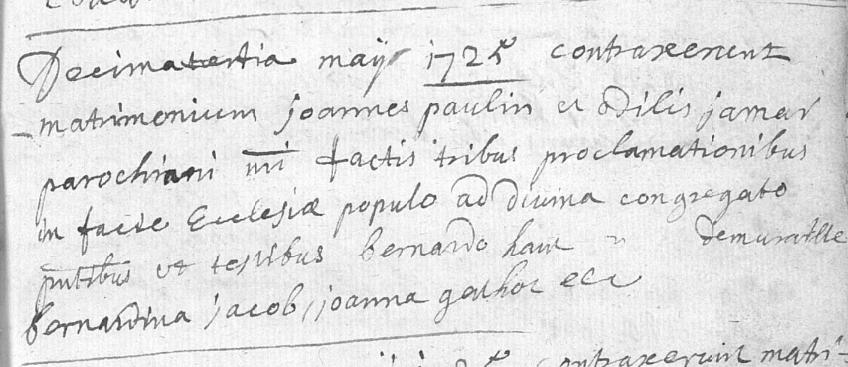 Decima tertia maij 1725 contraxerunt
matrimonium joannes paulin et odilis jamar
parochiani mi factis tribus proclamationibus
in facie Ecclesiæ populo ad divina congregato
pntibus ut testibus bernardo
bernardina jacob, joanna
contraxerunt matri-